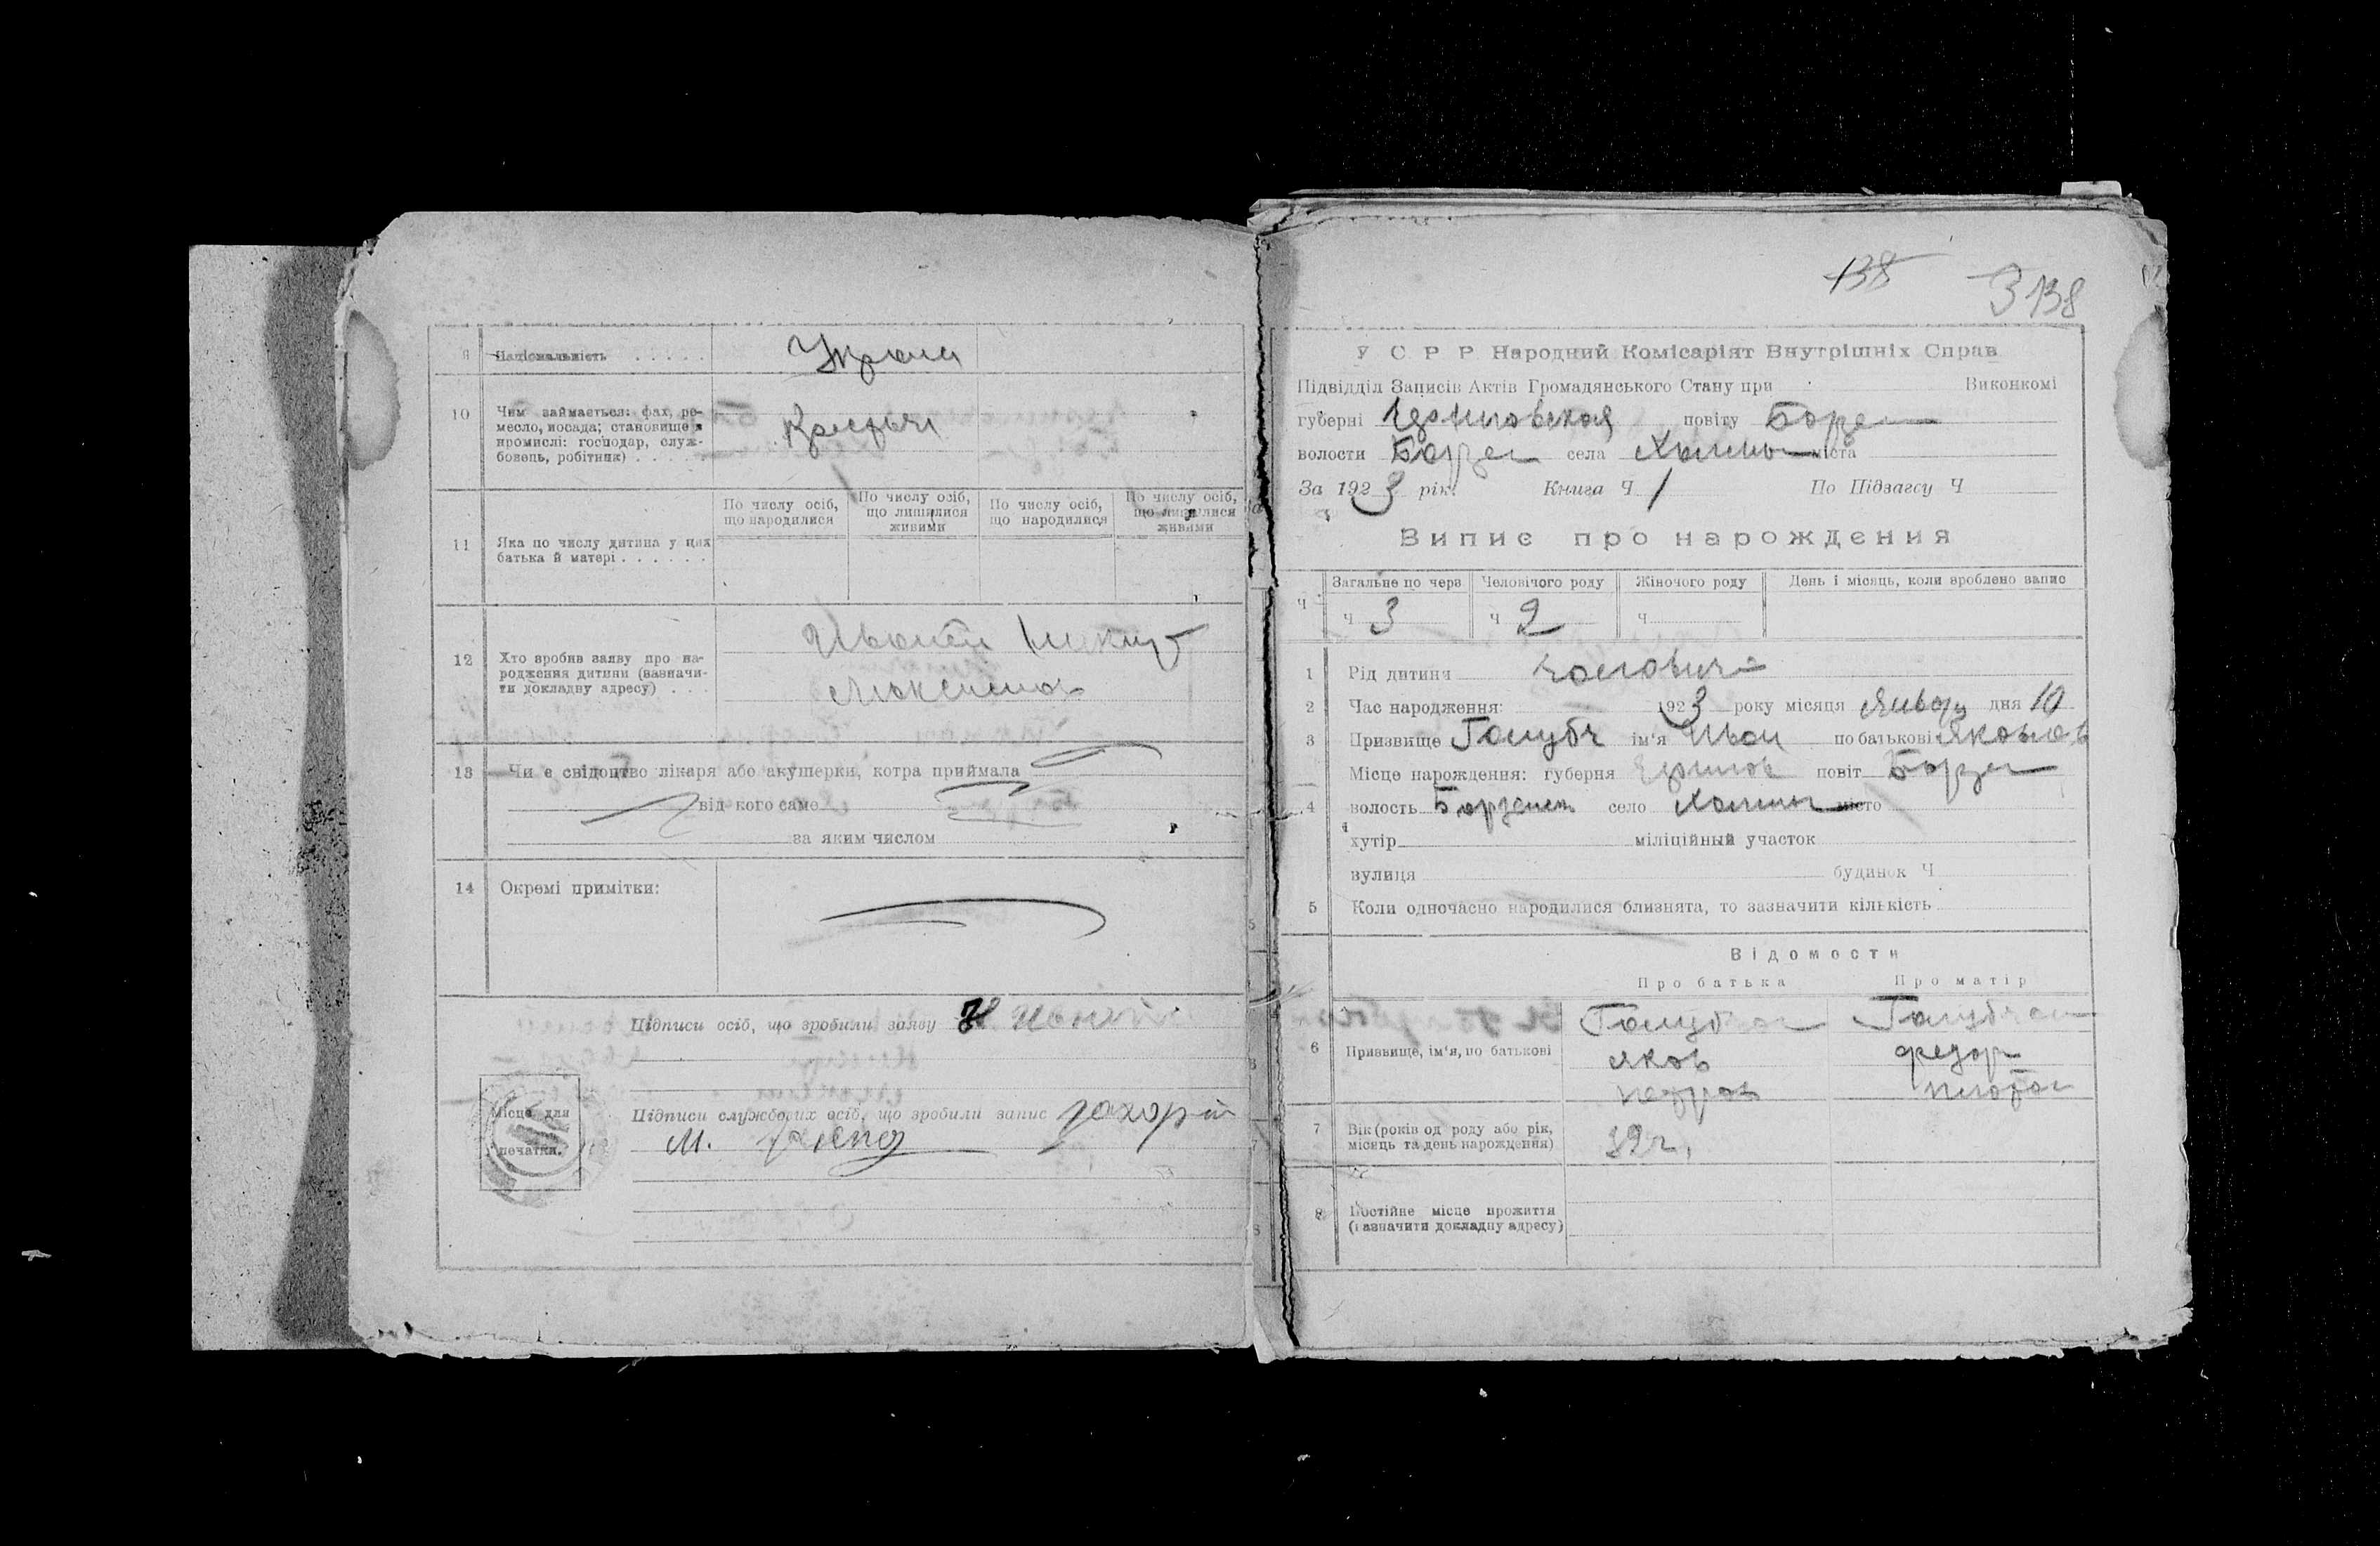 9 Національність . . . . . Украи
10 Чим займається: фах, ре-
месло, посада; становище в
промислі: господар, служ-
бовець, робітник) . . . . Крестьян
По числу осіб,
що народилися
По числу осіб,
що лишилися
живими
По числу осіб,
що народилися
По числу осіб,
що лишилися
живими
11 Яка по числу дитина у цих
батька й матері . . . . . .
12 Хто зробив заяву про на-
родження дитини (зазначи-
ти докладну адресу) . . .
13 Чи є свідоцтво лікаря або акушерки, котра приймала
від кого саме
за яким числом
14 Окремі примітки:
Підписи осіб, що зробили заяву
Місце для
печатки.
Підписи службових осіб, що зробили запис
М.
138 3 138
У С Р Р Народний Комісаріят Внутрішніх Справ
Підвідділ Записів Актів Громадянського Стану при Виконкомі
губерні Черниговская повіту Борзен
волости Борзен села міста
За 1923 рік. Книга Ч 1 По Підзагсу Ч
Випис про нарождения
Ч Загальне по черв Человічого роду Жіночого роду День і місяць, коли вроблено запис
ч 3 ч 2 ч
1 Рід дитини
2 Час народження: 1923 року місяця Январ дня 10
3 Призвище Голубч ім'я Иван по батькові Яковлев
Місце нарождення: губерня Чернигов повіт Борзен
4 волость Борзенск село місто
хутір міліційный участок
вулиця будинок Ч
5 Коли одночасно народилися близнята, то зазначити кількість
Відомости
Про батька Про матір
6 Призвище, ім'я, по батькові
Яков
Петров
7 Вік (років од роду або рік,
місяць та день нарождення) 32 г.
8 Постійне місце прожиття
(зазначити докладну адресу)